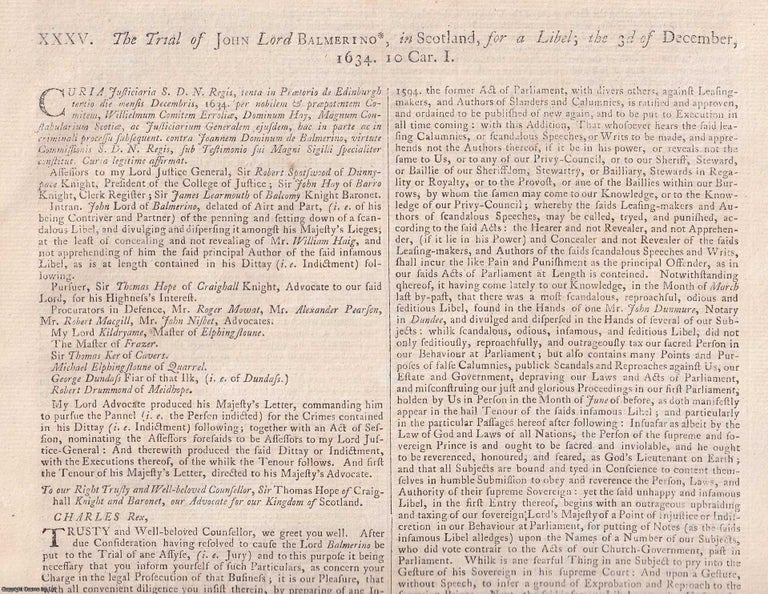 XXXV. The Trial of JOHN Lord BALMERINO*, in Scotland, for a Libel; the 3d of December,
1634. 10 Car. I.
CURIA Justiciaria S. D. N. Regis, tenta in Prætorio de Edinburgh
tertio die mensis Decembris, 1634. per nobilem & præpotentem Co-
mitem, Willielmum Comitem Erroliæ, Dominum Hay, Magnum Con-
stabularium Scotiæ, ac Justiciarium Generalem ejusdem, hac in parte ac in
criminali processu subsequent. contra Joannem Dominum de Balmerino, virtute
Commissionis S. D. N. Regis, sub Testimonio sui Magni Sigilli specialiter
constitut. Curia legitime affirmat.
Assessors to my Lord Justice General, Sir Robert Spotswood of Dunny-
pace Knight, President of the College of Justice; Sir John Hay of Barro
Knight, Clerk Register; Sir James Learmouth of Balcomy Knight Baronet.
Intran. John Lord of Balmerino, delated of Airt and Part, (i. e. of his
being Contriver and Partner) of the penning and setting down of a scan-
dalous Libel, and divulging and dispersing it amongst his Majesty's Lieges;
at the least of concealing and not revealing of Mr. William Haig, and
not apprehending of him the said principal Author of the said infamous
Libel, as is at length contained in his Dittay (i. e. Indictment) fol-
lowing.
Pursuer, Sir Thomas Hope of Craighall Knight, Advocate to our said
Lord, for his Highness's Interest.
Procurators in Defence, Mr. Roger Mowat, Mr. Alexander Pearson,
Mr. Robert Macgill, Mr. John Nisbet, Advocates.
My Lord Kildryane, Master of Elphingstoune.
The Master of Frazer.
Sir Thomas Ker of Cavers.
Michael Elphingstoune of Quarrel.
George Dundass Fiar of that Ilk, (i. e. of Dundass.)
Robert Drummond of Meidhope.
My Lord Advocate produced his Majesty's Letter, commanding him
to pursue the Pannel (i. e. the Person indicted) for the Crimes contained
in his Dittay (i. e. Indictment) following; together with an Act of Ses-
sion, nominating the Assessors foresaids to be Assessors to my Lord Jus-
tice-General: And therewith produced the said Dittay or Indictment,
with the Executions thereof, of the whilk the Tenour follows. And first
the Tenour of his Majesty's Letter, directed to his Majesty's Advocate.
To our Right Trusty and Well-beloved Counsellor, Sir Thomas Hope of Craig-
hall Knight and Baronet, our Advocate for our Kingdom of Scotland.
CHARLES Rex,
TRUSTY and Well-beloved Counsellor, we greet you well. After
due Consideration having resolved to cause the Lord Balmerino be
put to the Trial of ane Assyse, (i. e. Jury) and to this purpose it being
necessary that you inform yourself of such Particulars, as concern your
Charge in the legal Prosecution of that Business; it is our Pleasure, that
with all convenient diligence you insist therein, by preparing of ane In-
1594. the former Act of Parliament, with divers others, against Leasing-
makers, and Authors of Slanders and Calumnies, is ratified and approven,
and ordained to be published of new again, and to be put to Execution in
all time coming: with this Addition, That whosoever hears the said lea-
sing Calumnies, or scandalous Speeches, or Writs to be made, and appre-
hends not the Authors thereof, if it be in his power, or reveals not the
same to Us, or to any of our Privy-Council, or to our Sheriff, Steward,
or Baillie of our Sheriffdom, Stewartry, or Bailliary, Stewards in Rega-
lity or Royalty, or to the Provost, or ane of the Baillies within our Bur-
rows, by whom the samen may come to our Knowledge, or to the Know-
ledge of our Privy-Council; whereby the saids Leasing-makers and Au-
thors of scandalous Speeches, may be called, tryed, and punished, ac-
cording to the said Acts: the Hearer and not Revealer, and not Apprehen-
der, (if it lie in his Power) and Concealer and not Revealer of the saids
Leasing-makers, and Authors of the saids scandalous Speeches and Writs,
shall incur the like Pain and Punishment as the principal Offender, as in
our saids Acts of Parliament at Length is conteined. Notwithstanding
qhereof, it having come lately to our Knowledge, in the Month of March
last by-past, that there was a most scandalous, reproachful, odious and
seditious Libel, found in the Hands of one Mr. John Dunmure, Notary
in Dundee, and divulged and dispersed in the Hands of several of our Sub-
jects: whilk scandalous, odious, infamous, and seditious Libel, did not
only seditiously, reproachfully, and outrageously tax our sacred Person in
our Behaviour at Parliament; but also contains many Points and Pur-
poses of false Calumnies, publick Scandals and Reproaches against Us, our
Estate and Government, depraving our Laws and Acts of Parliament,
and misconstruing our just and glorious Proceedings in our first Parliament,
holden by Us in Person in the Month of June of before, as doth manifestly
appear in the hail Tenour of the saids infamous Libel; and particularly
in the particular Passages hereof after following: Insuafar as albeit by the
Law of God and Laws of all Nations, the Person of the supreme and so-
vereign Prince is and ought to be sacred and inviolable, and he ought
to be reverenced, honoured, and feared, as God's Lieutenant on Earth;
and that all Subjects are bound and tyed in Conscience to content them-
selves in humble Submission to obey and reverence the Person, Laws, and
Authority of their supreme Sovereign: yet the said unhappy and infamous
Libel, in the first Entry thereof, begins with an outrageous upbraiding
and taxing of our sovereign Lord's Majesty of a Point of Injustice or Indis-
cretion in our Behaviour at Parliament, for putting of Notes (as the saids
infamous Libel alledges) upon the Names of a Number of our Subjects,
who did vote contrair to the Acts of our Church-Government, past in
Parliament. Whilk is ane fearful Thing in ane Subject to pry into the
Gesture of his Sovereign in his supreme Court: And upon a Gesture,
without Speech, to infer a ground of Exprobation and Reproach to the